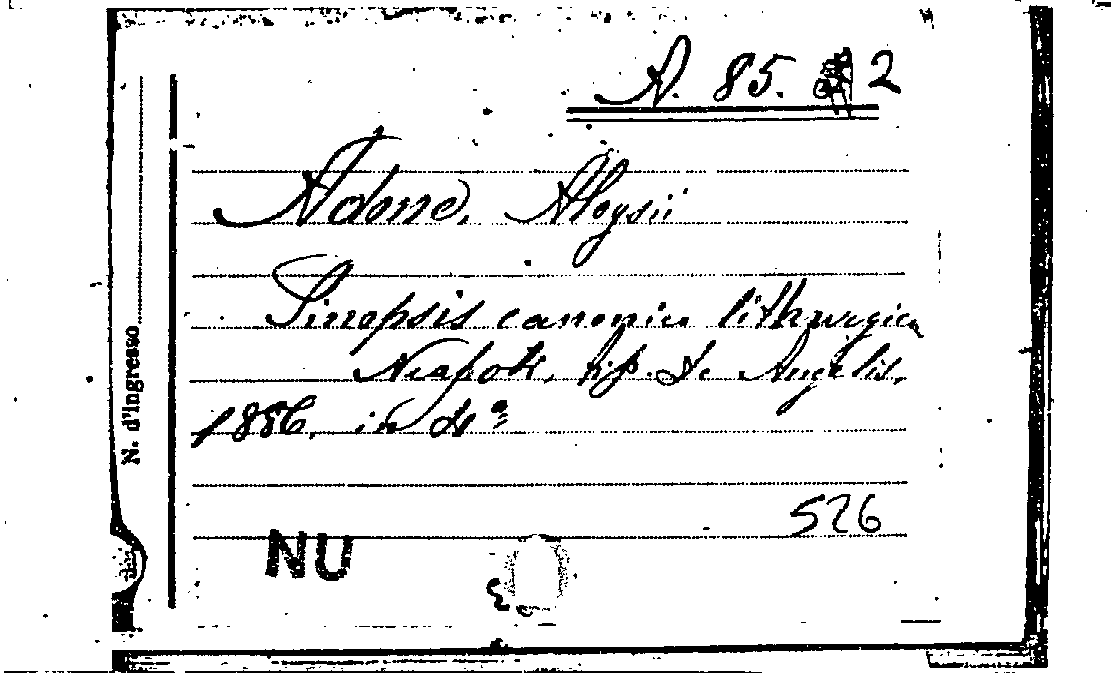 A. 85. 2
Adone, Aloysii
Sinopsis canonica lithurgica
Neapoli, tip. De Angelis,
1886, in 4°
526
NU
N. d'Ingresso